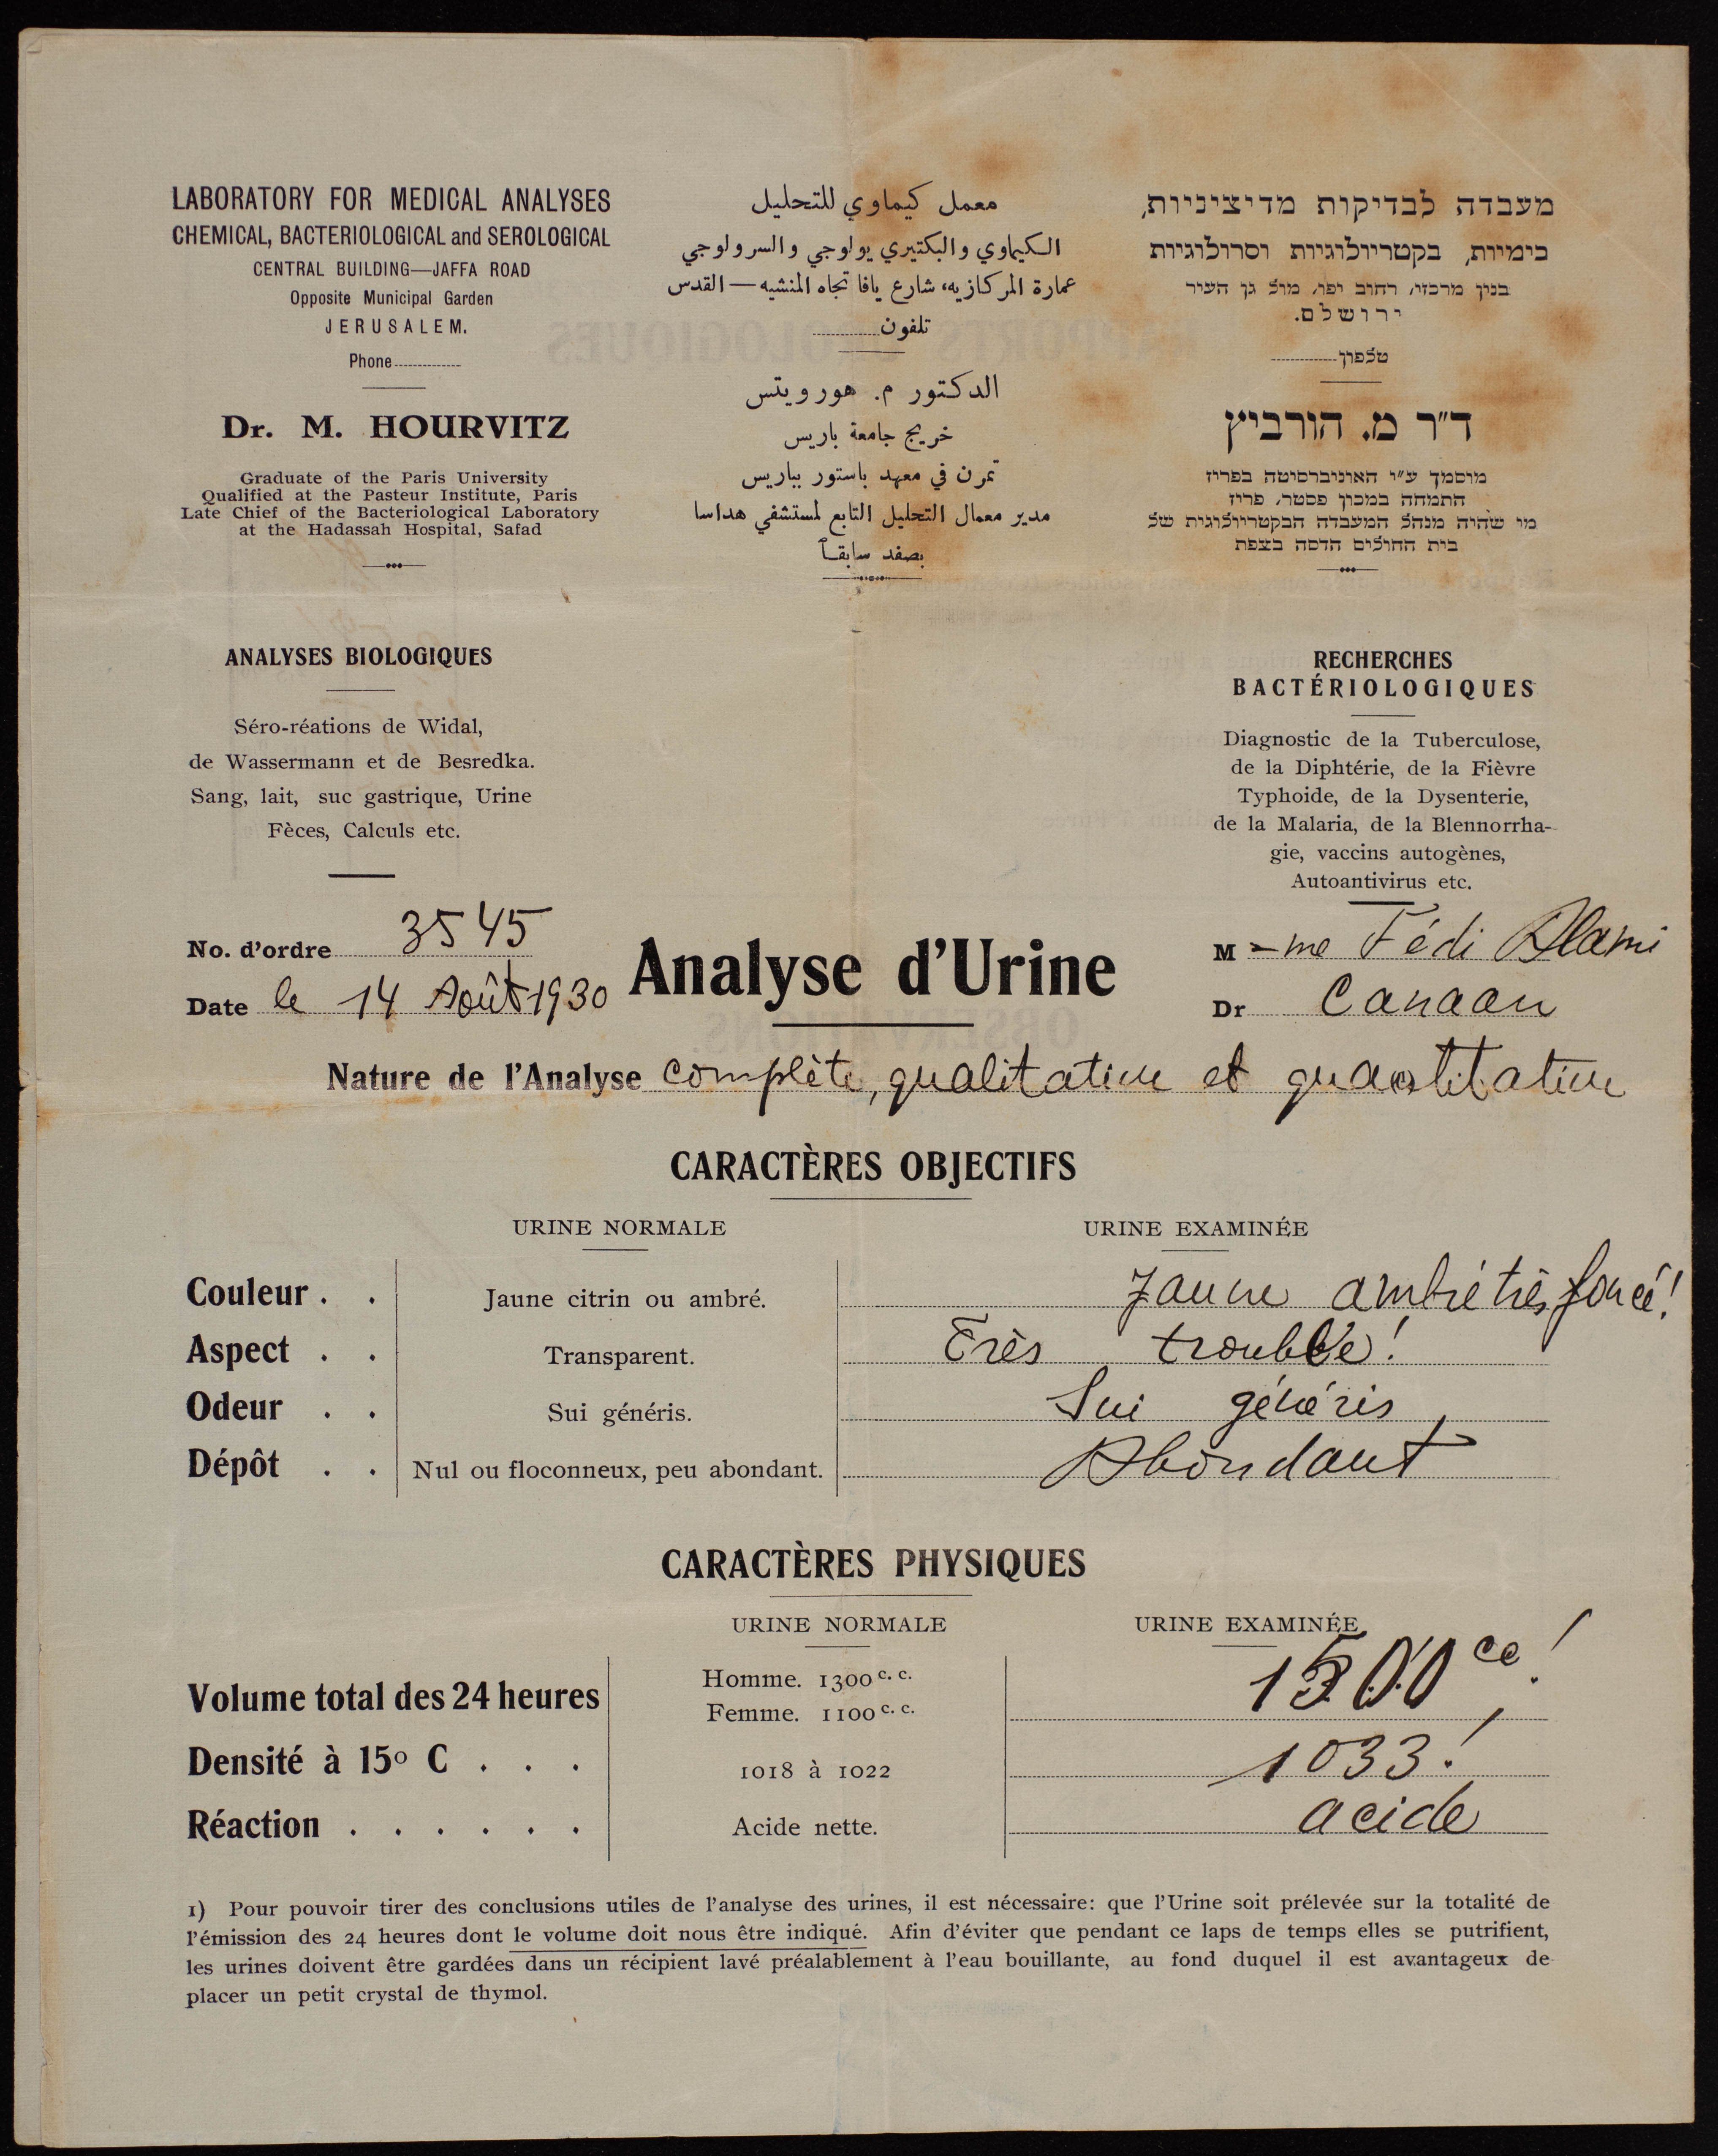 LABORATORY FOR MEDICAL ANALYSES
CHEMICAL, BACTERIOLOGICAL and SEROLOGICAL
CENTRAL BUILDING—JAFFA ROAD
Opposite Municipal Garden
JERUSALEM.
Phone
Dr. M. HOURVITZ
Graduate of the Paris University
Qualified at the Pasteur Institute, Paris
Late Chief of the Bacteriological Laboratory
at the Hadassah Hospital, Safad
معمل كيماوي للتحليل
الكيماوي والبكتيري يولوجي والسرولوجي
عمارة المركازيه، شارع يافا تجاه المنشيه — القدس
تلفون
الدكتور م. هورويتس
خريج جامعة باريس
تمرن في معهد باستور بباريس
مدير معمال التحليل التابع لمستشفي هداسا
بصفد سابقاً
מעבדה לבדיקות מדיציניות,
כימיות, בקטריולוגיות וסרולוגיות
בנין מרכזי, רחוב יפו, מול גן העיר
ירושלם.
טלפון
ד"ר מ. הורביץ
מוסמך ע"י האוניברסיטה בפריז
התמחה במכון פסטר, פריז
מי שהיה מנהל המעבדה הבקטריולוגית של
בית החולים הדסה בצפת
ANALYSES BIOLOGIQUES
Séro-réations de Widal,
de Wassermann et de Besredka.
Sang, lait, suc gastrique, Urine
Fèces, Calculs etc.
RECHERCHES
BACTÉRIOLOGIQUES
Diagnostic de la Tuberculose,
de la Diphtérie, de la Fièvre
Typhoide, de la Dysenterie,
de la Malaria, de la Blennorrha-
gie, vaccins autogènes,
Autoantivirus etc.
No. d'ordre 3545
Date le 14 Août 1930
Analyse d'Urine
M-me Fédi Alami
Dr Canaan
Nature de l'Analyse complète, qualitative et quantitative
CARACTÈRES OBJECTIFS
URINE NORMALE URINE EXAMINÉE
Couleur . . Jaune citrin ou ambré. Jaune ambré très foncé!
Aspect . . Transparent. Très trouble!
Odeur . . Sui généris. Sui généris
Dépôt . . Nul ou floconneux, peu abondant. Abondant
CARACTÈRES PHYSIQUES
URINE NORMALE URINE EXAMINÉE
Volume total des 24 heures Homme. 1300 c. c. 1500 cc!
Femme. 1100 c. c.
Densité à 15º C . . . 1018 à 1022 1033!
Réaction . . . . . . Acide nette. acide
1) Pour pouvoir tirer des conclusions utiles de l'analyse des urines, il est nécessaire: que l'Urine soit prélevée sur la totalité de
l'émission des 24 heures dont le volume doit nous être indiqué. Afin d'éviter que pendant ce laps de temps elles se putrifient,
les urines doivent être gardées dans un récipient lavé préalablement à l'eau bouillante, au fond duquel il est avantageux de
placer un petit crystal de thymol.